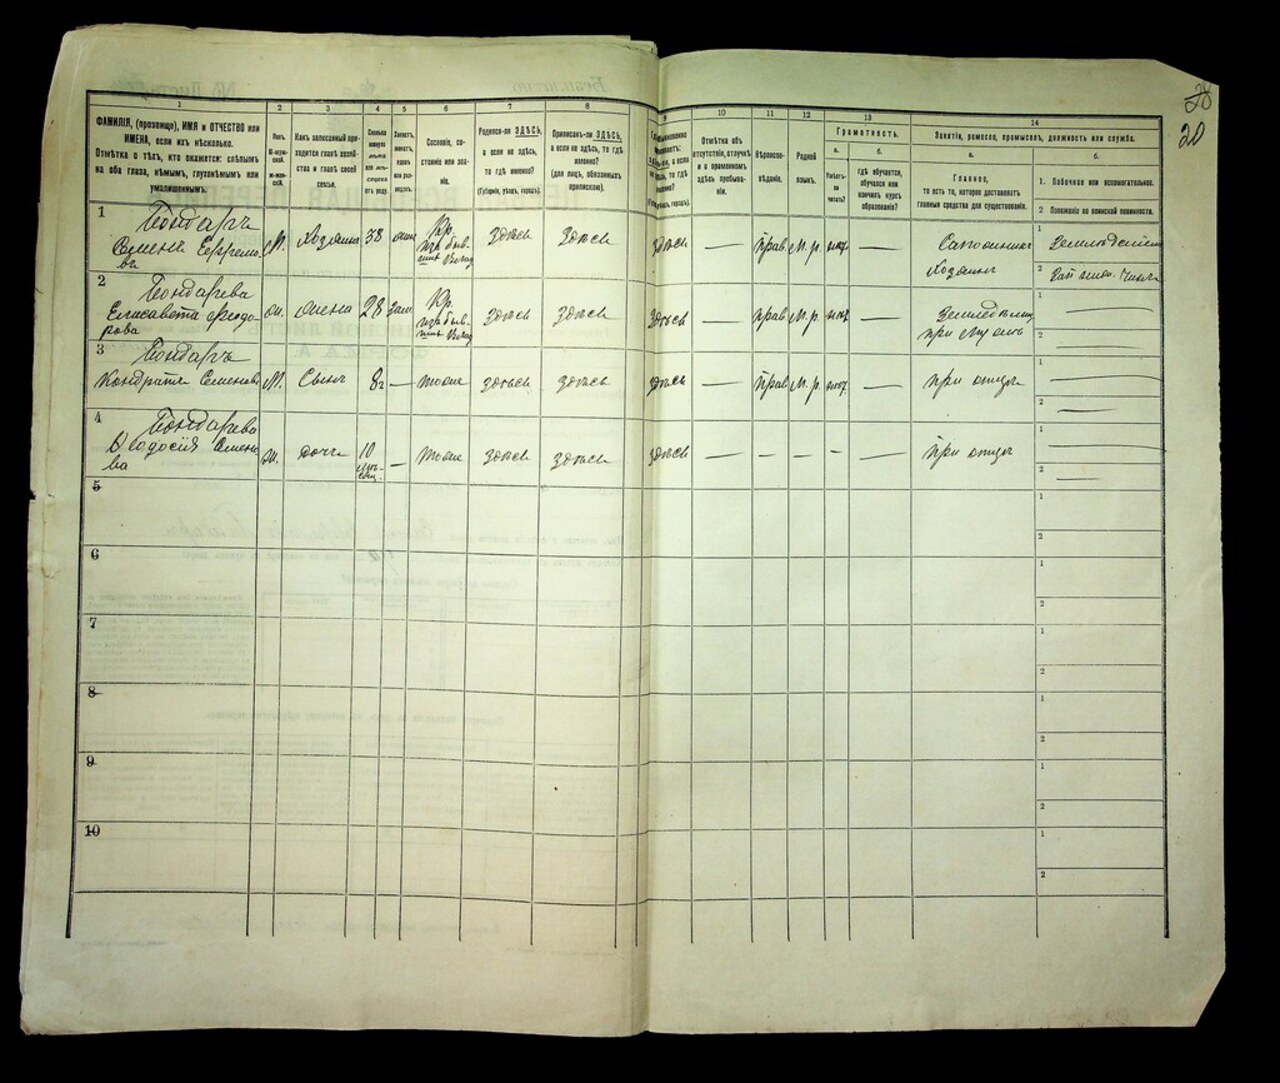 28
20
1
2
3
4
5
6
7
8
9
10
11
12
13
14
ФАМИЛІЯ, (прозвище), ИМЯ и ОТЧЕСТВО или
ИМЕНА, если ихъ нѣсколько.
Отмѣтка о тѣхъ, кто окажется: слѣпымъ
на оба глаза, нѣмымъ, глухонѣмымъ или
умалишеннымъ.
Полъ.
М-муж-
ской.
Ж-жен-
скій.
Какъ записанный при-
ходится главѣ хозяй-
ства и главѣ своей
семьи.
Сколько
минуло
лѣтъ
или мѣ-
сяцевъ
отъ роду.
Холостъ,
женатъ,
вдовъ
или раз-
веденъ.
Сословіе, со-
стояніе или зва-
ніе.
Родился-ли ЗДѢСЬ,
а если не здѣсь,
то гдѣ именно?
(Губернія, уѣздъ, городъ).
Приписанъ-ли ЗДѢСЬ,
а если не здѣсь, то гдѣ
именно?
(для лицъ, обязанныхъ
припискою).
Отмѣтка объ
отсутствіи, отлучкѣ
и о временномъ
здѣсь пребыва-
ніи.
Вѣроиспо-
вѣданіе.
Родной
языкъ.
Грамотность.
а.
Умѣетъ-
ли
читать?
б.
гдѣ обучается,
обучался или
кончилъ курсъ
образованія?
Занятіе, ремесло, промыселъ, должность или служба.
а.
Главное,
то есть то, которое доставляетъ
главныя средства для существованія.
б.
1. Побочное или вспомогательное.
2 Положеніе по воинской повинности.
1 Бондаръ
Семенъ Ефремо-
въ
М. Хозяинъ 38 Кр.
здѣсь здѣсь здѣсь — прав М. р. — Сапожникъ
Хозяинъ
1 Земледѣліе
2
2 Бондарева
Елисавета Федо-
рова
ж. жена 28 зам Кр.
здѣсь здѣсь здѣсь — прав М. р. —
при мужѣ
1 —
2 —
3 Бондаръ
Кондратъ Семеновъ
М. Сынъ 8 — тоже здѣсь здѣсь здѣсь — прав М. р. — при отцѣ
1 —
2 —
4 Бондарева
Феодосія Семено-
ва
ж. дочь 10
мѣ-
сяц.
— тоже здѣсь здѣсь здѣсь — — — — — при отцѣ
1 —
2 —
5
1
2
6
1
2
7
1
2
8
1
2
9
1
2
10
1
2